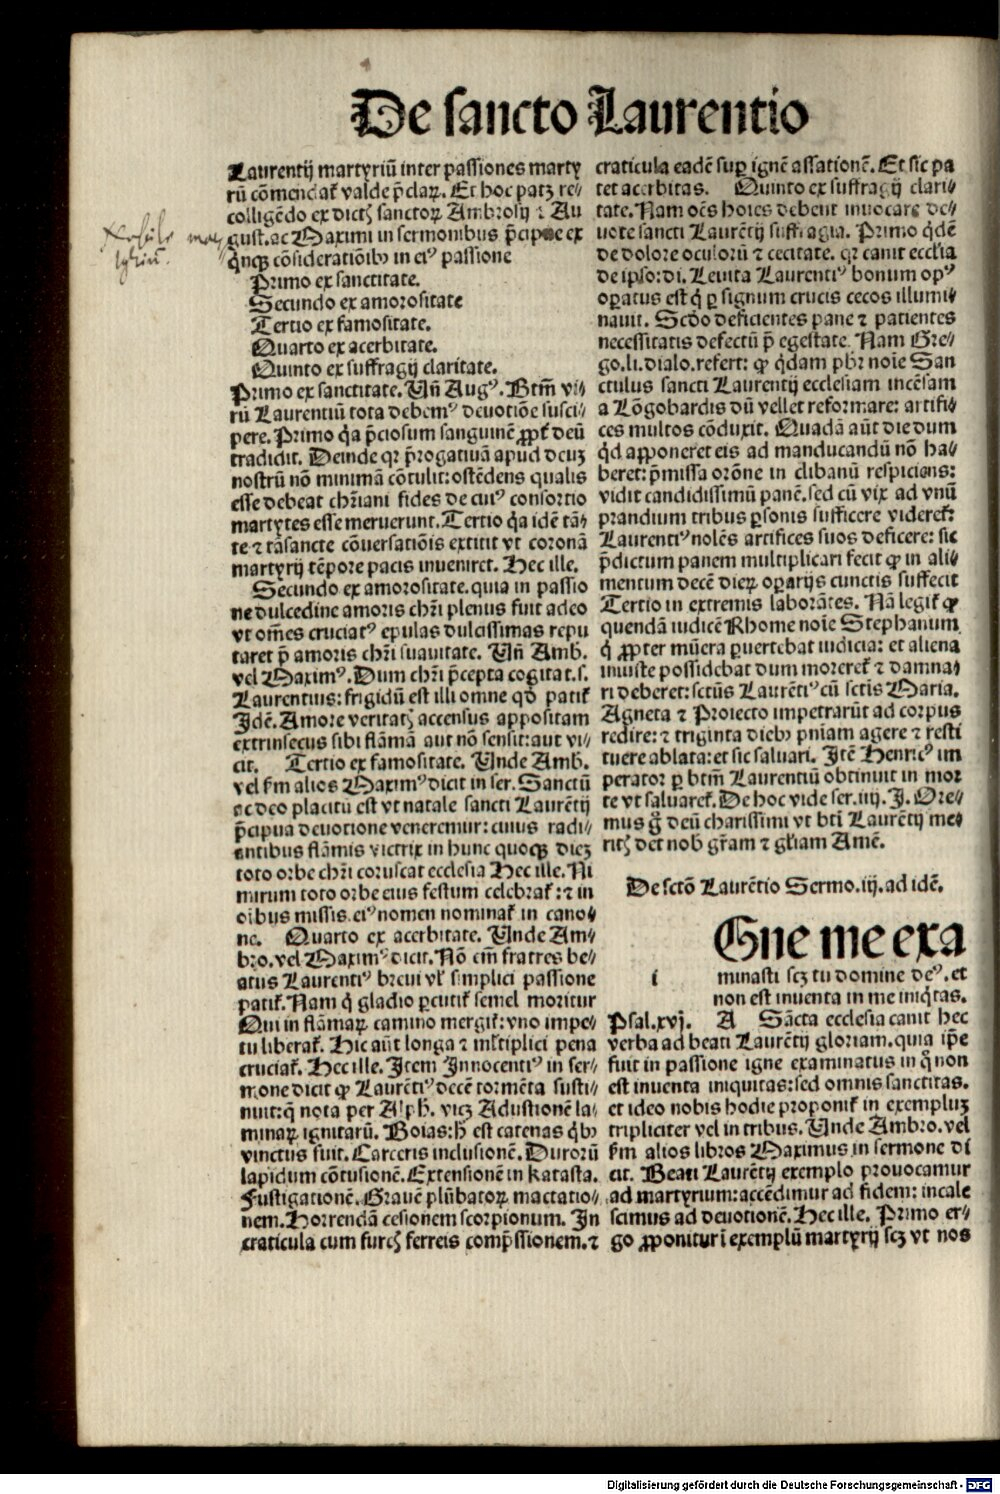 De sancto Laurentio
Laurentij martyriũ inter passiones marty
rũ cõmendat᷑ valde p̃claꝝ. Et hoc patꝫ re⸗
colligẽdo ex dictꝭ sanctoꝝ Ambrosij ⁊ Au
gust. ac Maximi in sermonibus p̃cipue ex
q̃nqꝫ cõsideratiõibꝰ in eiꝰ passione
Primo ex sanctitate.
Secundo ex amorositate
Tertio ex famositate.
Quarto ex acerbitate.
Quinto ex suffragij claritate.
Primo ex sanctitate. Vñ Augꝰ. Btm̃ vi⸗
rũ Laurentiũ tota debemꝰ deuotiõe susci⸗
pere. Primo q̃a p̃ciosum sanguinẽ ꝓpt᷑ deũ
tradidit. Deinde qꝛ p̃rogatiuã apud deuꝫ
nostrũ nõ minimã cõtulit: ostẽdens qualis
esse debeat chr̃iani fides de cuiꝰ consortio
martyres esse meruerunt. Tertio q̃a idẽ tã⸗
te ⁊ tã sancte cõuersatiõis extitit vt coronã
martyrij tẽpore pacis inueniret. Hec ille.
Secundo ex amorositate. quia in passio
ne dulcedine amoris chr̃i plenus fuit adeo
vt om̃es cruciatꝰ epulas dulcissimas repu
taret p̃ amoris chr̃i suauitate. Vñ Amb.
vel Maximꝰ. Dum chr̃i p̃cepta cogitat. s.
Laurentius: frigidũ est illi omne qd̃ patit᷑
Idẽ. Amore veritatꝭ accensus appositam
extrinsecus sibi flãmã aut nõ sensit: aut vi⸗
cit. Tertio ex famositate. Unde Amb.
vel ẜm alios Maximꝰ dicit in ser. Sanctũ
ac deo placitũ est vt natale sancti Laurẽtij
p̃cipua deuotione veneremur: cuius radi⸗
antibus flãmis victrix in hunc quoqꝫ dieꝫ
toto orbe chr̃i coruscat ecclesia Hec ille. Ni
mirum toto orbe eius festum celebrat᷑: ⁊ in
oibus missis eiꝰ nomen nominat᷑ in cano⸗
ne. Quarto ex acerbitate. Unde Am⸗
bro. vel Maximꝰ dicit. Nõ em̃ fratres be⸗
atus Laurentiꝰ breui vl̕ simplici passione
patit᷑. Nam q̃ gladio ꝑcutit᷑ semel moritur
Qui in flãmaꝝ camino mergit᷑: vno impe⸗
tu liberat᷑. Hic aũt longa ⁊ ml̕tiplici pena
cruciat᷑. Hec ille. Item Innocentiꝰ in ser⸗
mone dicit ꝙ Laurẽtiꝰ decẽ tormẽta susti⸗
nuit: q̃ nota per Alph. vicꝫ Adustionẽ la⸗
minaꝝ ignitarũ. Boias: h̃ est catenas q̃bꝰ
vinctus fuit. Carceris inclusionẽ. Durorũ
lapidum cõtusionẽ. Extensionẽ in katasta.
Fustigationẽ. Grauẽ plũbatoꝝ mactatio⸗
nem. Horrendã cesionem scorpionum. In
craticula cum furcꝭ ferreis comp̃ssionem. ⁊
craticula eadẽ suꝑ ignẽ assationẽ. Et sic pa
tet acerbitas. Quinto ex suffragij clari⸗
tate. Nam oẽs hoĩes debent inuocare de⸗
uote sancti Laurẽtij suffragia. Primo q̃dẽ
de dolore oculorũ ⁊ cecitate. qꝛ canit eccl̃ia
de ipso: di. Leuita Laurentiꝰ bonum opꝰ
oꝑatus est q̃ ꝑ signum crucis cecos illumi⸗
nauit. Scd̃o deficientes pane ⁊ patientes
necessitatis defectũ p̃ egestate. Nam Gre⸗
go. li. dialo. refert: ꝙ q̃dam pb̃r noĩe San
ctulus sancti Laurentij ecclesiam incẽsam
a Lõgobardis dũ vellet reformare: artifi⸗
ces multos cõduxit. Quadã aũt die dum
q̃d apponeret eis ad manducandũ nõ ha⸗
beret: p̃missa orõne in clibanũ respiciens:
vidit candidissimũ panẽ. sed cũ vix ad vnũ
prandium tribus ꝑsonis sufficere videret᷑:
Laurentiꝰ nolẽs artifices suos deficere: sic
p̃dictum panem multiplicari fecit ꝙ in ali⸗
mentum decẽ dieꝝ oꝑarijs cunctis suffecit
Tertio in extremis laborãtes. Nã legit᷑ ꝙ
quendã iudicẽ Rhome noĩe Stephanum
q̃ ꝓpter mũera ꝑuertebat iudicia: et aliena
iniuste possidebat dum moreret᷑ ⁊ damna⸗
ri deberet: sctũs Laurẽtiꝰ cũ sctĩs Maria.
Agneta ⁊ Proiecto impetrarũt ad corpus
redire: ⁊ triginta diebꝰ pñiam agere ⁊ resti
tuere ablata: et sic saluari. Itẽ Henricꝰ im
perator ꝑ btm̃ Laurentiũ obtinuit in mor
te vt saluaret᷑. De hoc vide ser. iiij. I. Ore⸗
mus g̃ deũ charissimi vt bti̅ Laurẽtij me⸗
ritꝭ det nob gr̃am ⁊ gl̃iam Amẽ.
De sctõ Laurẽtio Sermo. iij. ad idẽ.
Gne me exa
i minasti scꝫ tu domine deꝰ. et
non est inuenta in me iniq̃tas.
Psal. xvj. A Sãcta ecclesia canit hec
verba ad beati Laurẽtij gloriam. quia ip̃e
fuit in passione igne examinatus in q̃ non
est inuenta iniquitas: sed omnis sanctitas.
et ideo nobis hodie proponit᷑ in exempluꝫ
tripliciter vel in tribus. Unde Ambro. vel
ẜm alios libros Maximus in sermone di
cit. Beati Laurẽtij exemplo prouocamur
ad martyrium: accẽdimur ad fidem: incale
scimus ad deuotionẽ. Hec ille. Primo er⸗
go ꝓponitur ĩ exemplũ martyrij scꝫ vt nos
Digitalisierung gefördert durch die Deutsche Forschungsgemeinschaft - DFG